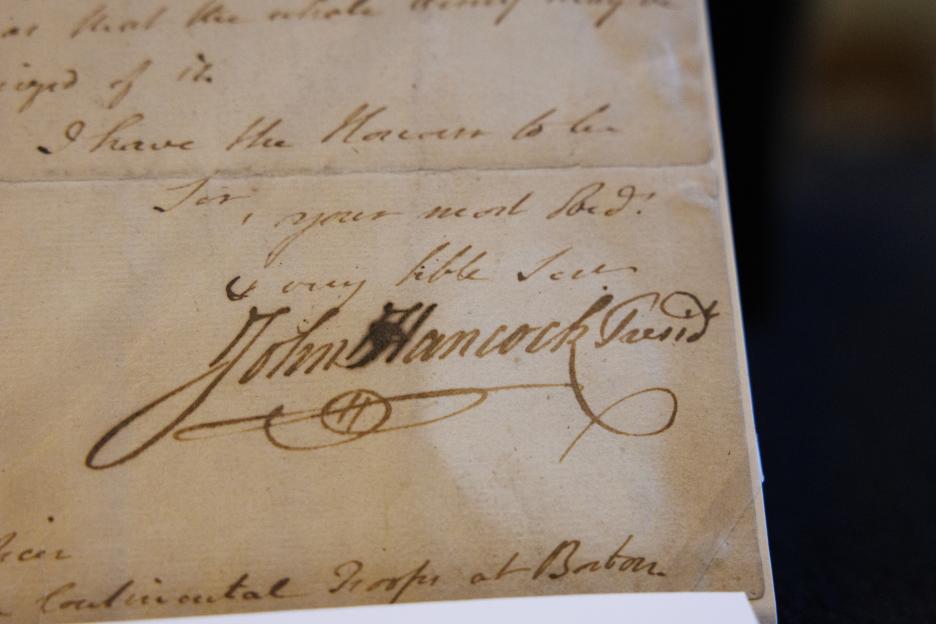 that the whole Army may be
of it.
I have the Honour to be
Sir, your most Obed.t
& very hble Ser
John Hancock Presid.t
Continental Troops at Boston.